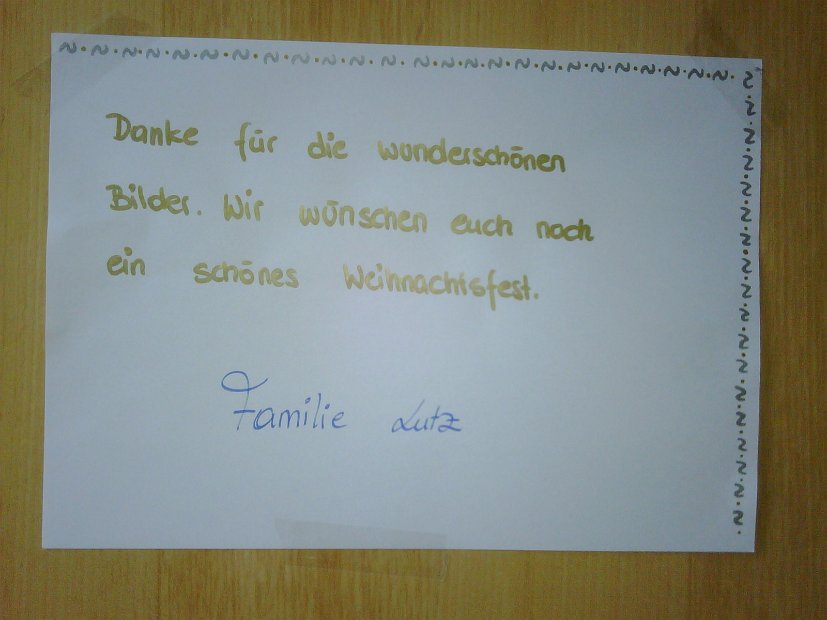 Danke für die wunderschönen
Bilder. Wir wünschen euch noch
ein schönes Weihnachtsfest.
Familie Lutz